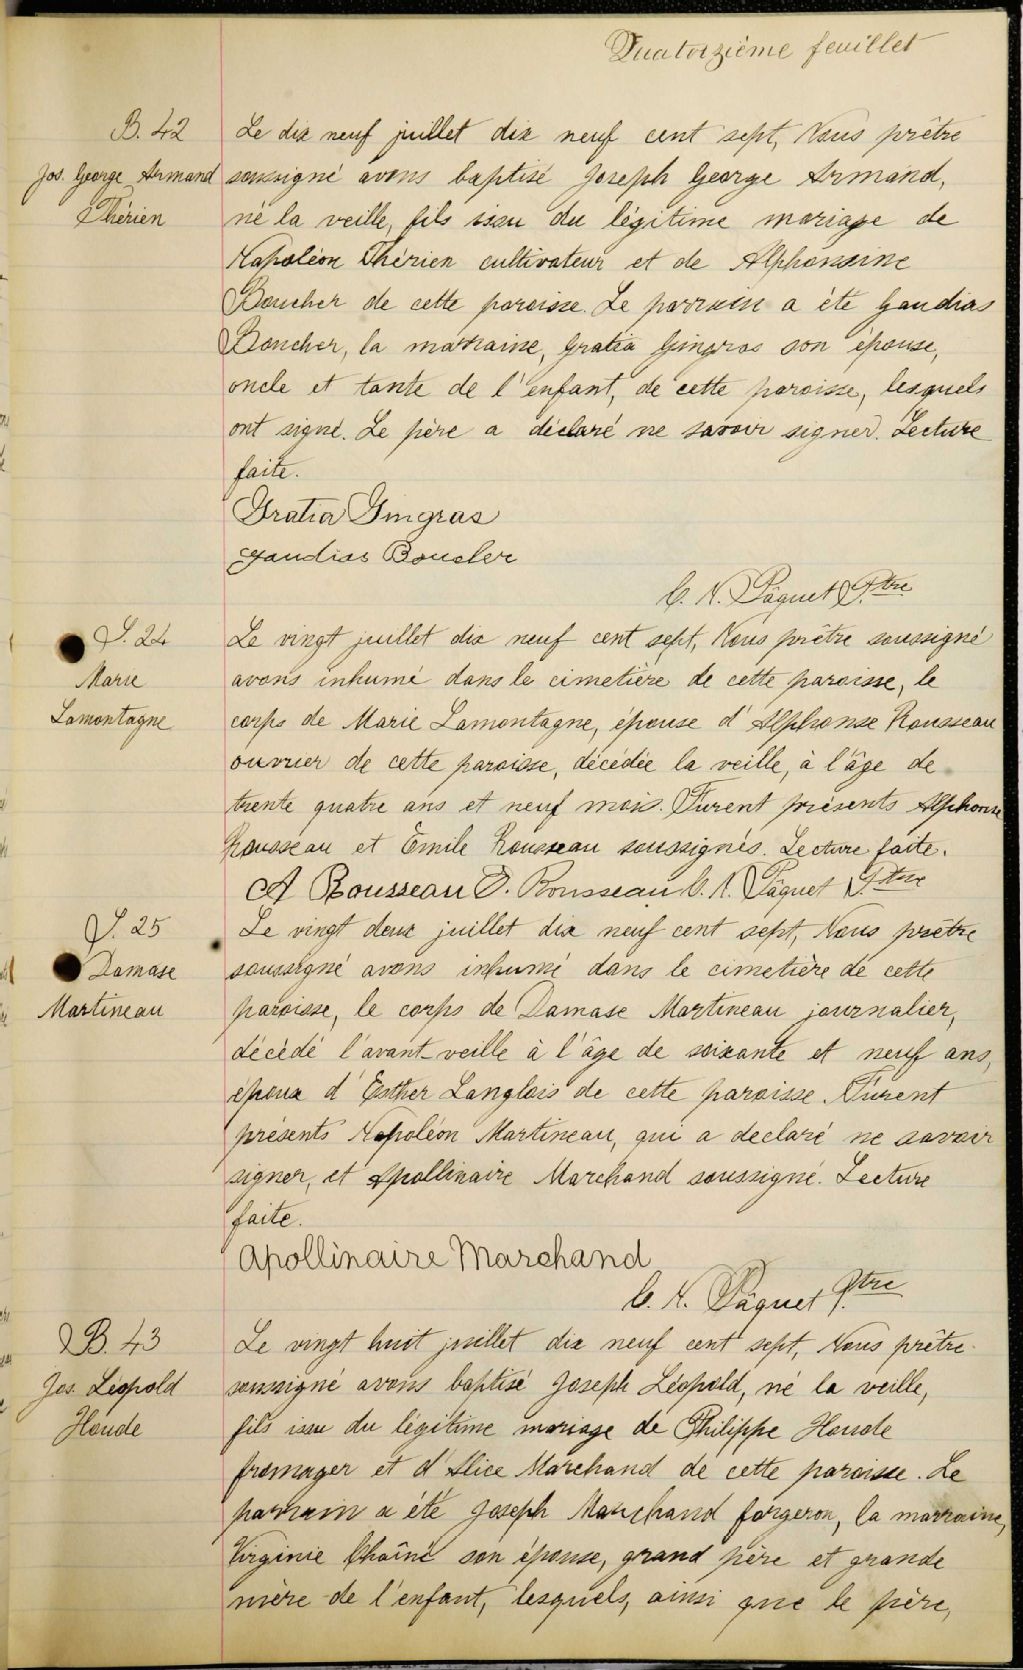 Quatorzième feuillet
B. 42
Jos. George Armand
Thérien
Le dix neuf juillet dix neuf cent sept, Nous prêtre
soussigné avons baptisé Joseph George Armand,
né la veille, fils issu du légitime mariage de
Napoléon Thérien cultivateur et de Alphonsine
Boucher de cette paroisse. Le parrain a été Gaudias
Boucher, la marraine, Gratia Gingras son épouse,
oncle et tante de l'enfant, de cette paroisse, lesquels
ont signé. Le père a déclaré ne savoir signer. Lecture
faite.
Gratia Gingras
Gaudias Boucher
C. N. Pâquet Ptre
S. 24
Marie
Lamontagne
Le vingt juillet dix neuf cent sept, Nous prêtre soussigné
avons inhumé dans le cimetière de cette paroisse, le
corps de Marie Lamontagne, épouse d'Alphonse Rousseau
ouvrier de cette paroisse, décédée la veille, à l'âge de
trente quatre ans et neuf mois. Furent présents Alphonse
Rousseau et Émile Rousseau soussignés. Lecture faite.
A Rousseau E. Rousseau C. N. Pâquet Ptre
S. 25
Damase
Martineau
Le vingt deux juillet dix neuf cent sept, Nous prêtre
soussigné avons inhumé dans le cimetière de cette
paroisse, le corps de Damase Martineau journalier,
décédé l'avant-veille à l'âge de soixante et neuf ans,
époux d'Esther Langlois de cette paroisse. Furent
présents Napoléon Martineau, qui a declaré ne savoir
signer, et Apollinaire Marchand soussigné. Lecture
faite.
Apollinaire Marchand
C. N. Pâquet Ptre
B. 43
Jos. Léopold
Houde
Le vingt huit juillet dix neuf cent sept, Nous prêtre
soussigné avons baptisé Joseph Léopold, né la veille,
fils issu du légitime mariage de Philippe Houde
fromager et d'Alice Marchand de cette paroisse. Le
parrain a été Joseph Marchand forgeron, la marraine,
Virginie Chaîné son épouse, grand père et grande
mère de l'enfant, lesquels, ainsi que le père,